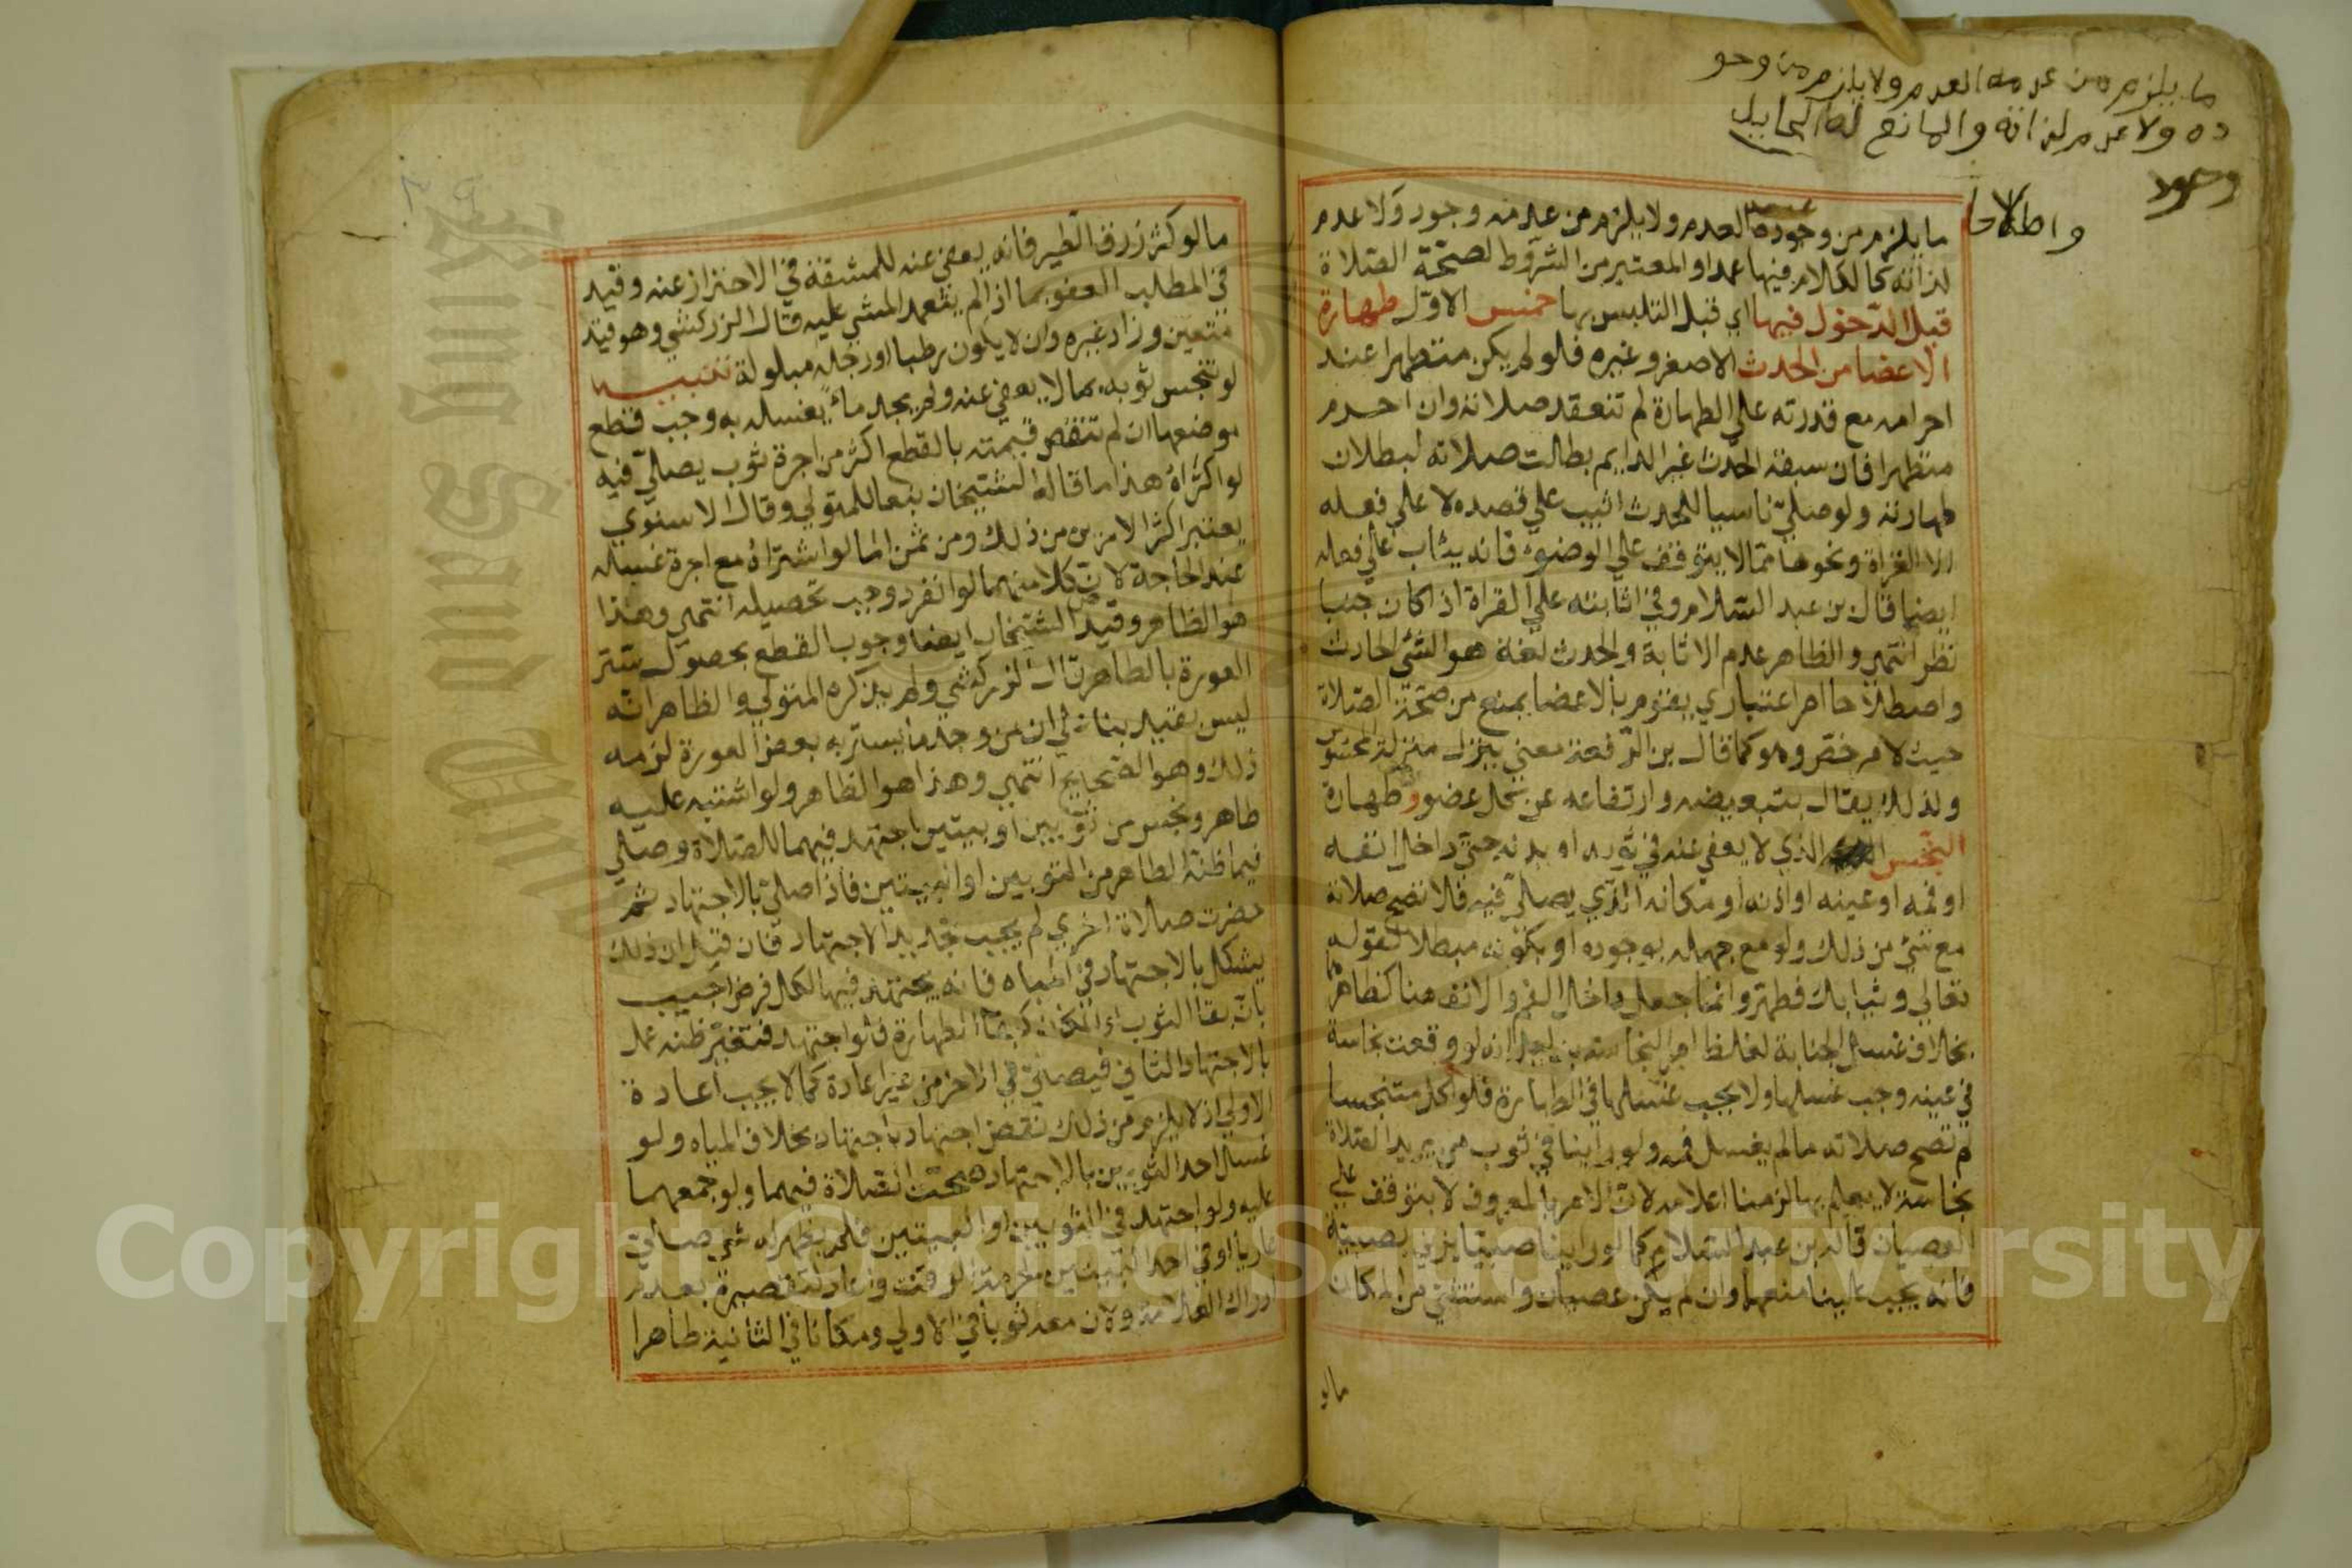 ما يلزم من عدمه العدم ولا يلزم من وجو
ده ولا عدم لذاته والمانع لغة الحايل
واصطلاحا
ما يلزم من وجوده العدم ولا يلزم من عدمه وجود ولا عدم
لذاته كالكلام فيها عمدا والمعتبر من الشروط لصحة الصلاة
قبل الدخول فيها اي قبل التلبس بها خمس الاول طهارة
الاعضا من الحدث الاصغر وغيره فلو لم يكن متطهرا عند
احرامه مع قدرته علي الطهارة لم تنعقد صلاته وان احرم
متطهرا فان سبقه الحدث غير الدايم بطلت صلاته لبطلان
طهارته ولو صلي ناسيا للحدث اثيب علي قصده لا علي فعله
الا القراة ونحوها مما لا يتوقف علي الوضوء فانه يثاب علي فعله
ايضا قال بن عبد السلام وفي اثابته علي القراة اذا كان جنبا
نظر انتهي والظاهر عدم الاثابة والحدث لغة هو الشئ الحادث
واصطلاحا امر اعتباري يقوم بالاعضا يمنع من صحة الصلاة
حيث لا مرخص وهو كما قال بن الرفعة معني ينزل منزلة المحسوس
ولذلك يقال بتبعيضه وارتفاعه عن كل عضو و طهارة
النجس الذي لا يعفي عنه في ثوبه او بدنه حتي داخل انفه
او فمه او عينه او اذنه او مكانه الذي يصلي فيه فلا تصح صلاته
مع شئ من ذلك ولو مع جهله بوجوده او بكونه مبطلا لقوله
تعالي وثيابك فطهر وانما جعل داخل الفم والانف هنا كظاهرهما
بخلاف غسل الجنابة لغلظ امر النجاسة بدليل انه لو وقعت نجاسة
في عينه وجب غسلها ولا يجب غسلها في الطهارة فلو اكل متنجسا
لم تصح صلاته ما لم يغسل فمه ولو راينا في ثوب من يريد الصلاة
نجاسة لا يعلم بها لزمنا اعلامه لان الامر بالمعروف لا يتوقف علي
العصيان قاله بن عبد السلام كما لو راينا صبيا يزني بصبية
فانه يجب علينا منعهما وان لم يكن عصيان واستثني من المكان
مالو
مالو كثر زرق الطير فانه يعفي عنه للمشقة في الاحتراز عنه وقيد
في المطلب العفو بما اذا لم يتعمد المشي عليه قال الزركشي وهو قيد
متعين وزاد غيره وان لا يكون رطبا او رجله مبلولة تنبيه
لو تنجس ثوبه بما لا يعفي عنه ولم يجد ماء يغسله به وجب قطع
موضعها ان لم تنقص قيمته بالقطع اكثر من اجرة ثوب يصلي فيه
لو اكتراه هذا ما قاله الشيخان تبعا للمتولي وقال الاسنوي
يعتبر اكثر الامرين من ذلك ومن ثمن الما لو اشتراه مع اجرة غسله
عند الحاجة لان كلا منهما لو انفرد وجب تحصيله انتهي وهذا
هو الظاهر وقيد الشيخان ايضا وجوب القطع بحصول ستر
العورة بالطاهر قال الزركشي ولم يذكره المتولي والظاهر انه
ليس بقيد بنا علي ان من وجد ما يستر به بعض العورة لزمه
ذلك وهو الصحيح انتهي وهذا هو الظاهر ولو اشتبه عليه
طاهر ونجس من ثوبين او بيتين اجتهد فيهما للصلاة وصلي
فيما ظنه الطاهر من الثوبين او البيتين فاذا صلي بالاجتهاد ثم
حضرت صلاة اخري لم يجب تجديد الاجتهاد فان قيل ان ذلك
يشكل بالاجتهاد في المياه فانه يجتهد فيها لكل فرض اجيب
بان بقا الثوب او المكان كبقا الطهارة فلو اجتهد فتغير ظنه عمل
بالاجتهاد الثاني فيصلي في الاخر من غير اعادة كما لا يجب اعادة
الاولي اذ لا يلزم من ذلك نقض اجتهاد باجتهاد بخلاف المياه ولو
غسل احد الثوبين بالاجتهاد صحت الصلاة فيهما ولو جمعهما
عليه ولو اجتهد في الثوبين او البيتين فلم يظهر له شي صلي
عاريا او في احد البيتين لحرمة الوقت واعاد لتقصيره بعدم
ادراك العلامة ولان معه ثوبا في الاولي ومكانا في الثانية طاهرا
Copyright © King Saud University